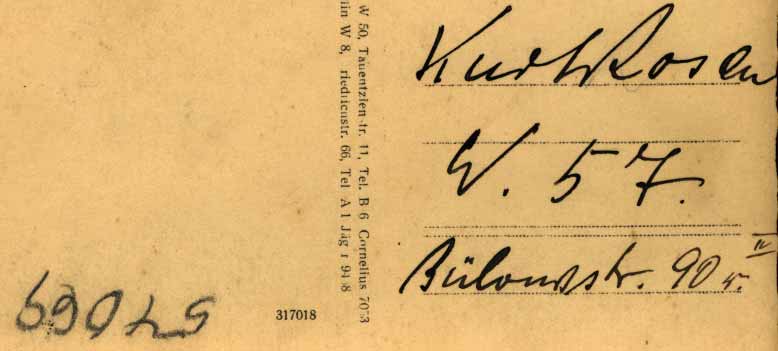 W 50, Tauentzien tr. 11, Tel. B 6 Cornelius 70 3
in W 8, riedrichstr. 66, Tel A 1 Jäg r 94 8
Kurt Rosen
W. 57.
Bülowstr. 90 r. IV
317018